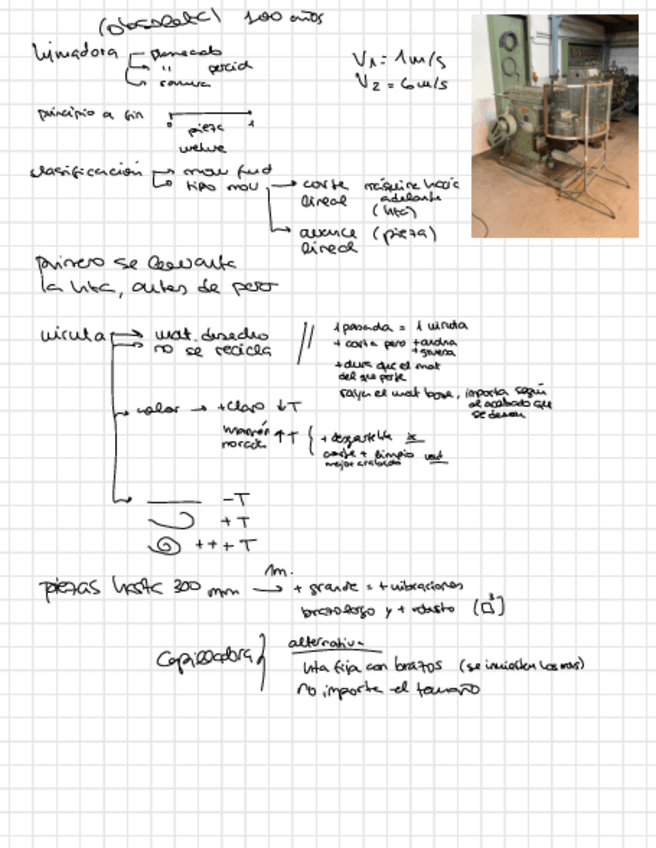 (obsoleta) 100 años
limadora planeado
" parcial
ranura
V1 = 1 m/s
V2 = 6 m/s
principio a fin
pieza
vuelve
clasificación mov fund
tipo mov corte lineal máquina hacia adelante (hta)
avance lineal (pieza)
primero se levanta
la hta, antes de
viruta mat. desecho
no se recicla
1 pasada = 1 viruta
+ corta pero + ancha
+ gruesa
+ dura que el mat
del que parte
raya el mat base, importa según
el acabado que
se desea
color → + claro ↓T
marrón
morado ↑T
+ desgaste hta
corte + limpio
mejor acabado
-T
+T
+++T
piezas hasta 300 mm 1m. → + grande = + vibraciones
brazo largo y + robusto
Cepilladora alternativa
hta fija con brazos (se invierten los mov)
no importa el tamaño